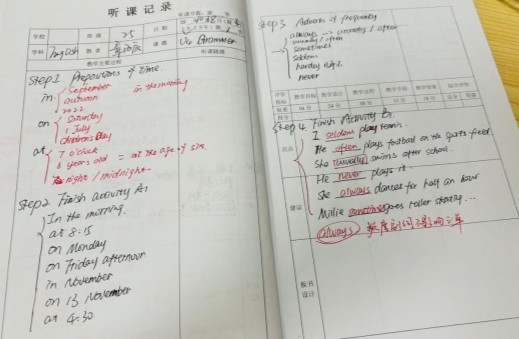 听课记录
学校
班级
25
日期
学科
English
教者
课题
U6 Grammar
教学主要过程
听课随感
Step1 Prepositions of time.
in
September
autumn
2022
in the morning
on
Saturday
1 July
Children's Day
at
7 o'clock
6 years old = at the age of six.
night / midnight
Step2 Finish activity A1.
In the morning.
at 8:15
on Monday
on Friday afternoon
in November
on 13 November
at 4:30
Step 3 Adverbs of frequency
always
usually / often
sometimes
seldom
hardly
never
评价指标
教学目标
教学设计
教学过程
教学手段
教学效果
综合评价
权重
得分
Step 4 Finish Activity B1.
I seldom play tennis.
He often plays football on the sports field.
She usually swims after school.
He never plays it.
She always dances for half an hour
Millie sometimes goes roller skating...
always 频度副词不影响三单
建议
板书设计